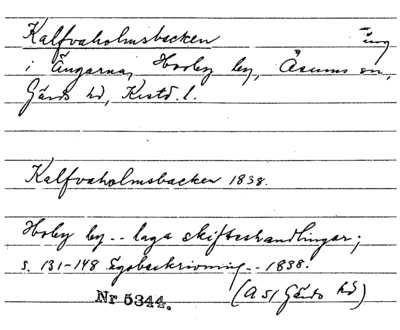 Kalfvaholmsbacken äng
i Ängarna, Horby by, Åsums sn,
Gärds hd, Kristd. l.
Kalfvaholmsbacken 1838.
Horby by -- laga skifteshandlingar;
s. 131-148 Egobeskrivning -- 1838.
Nr 5344. (A 51 Gärds hd)